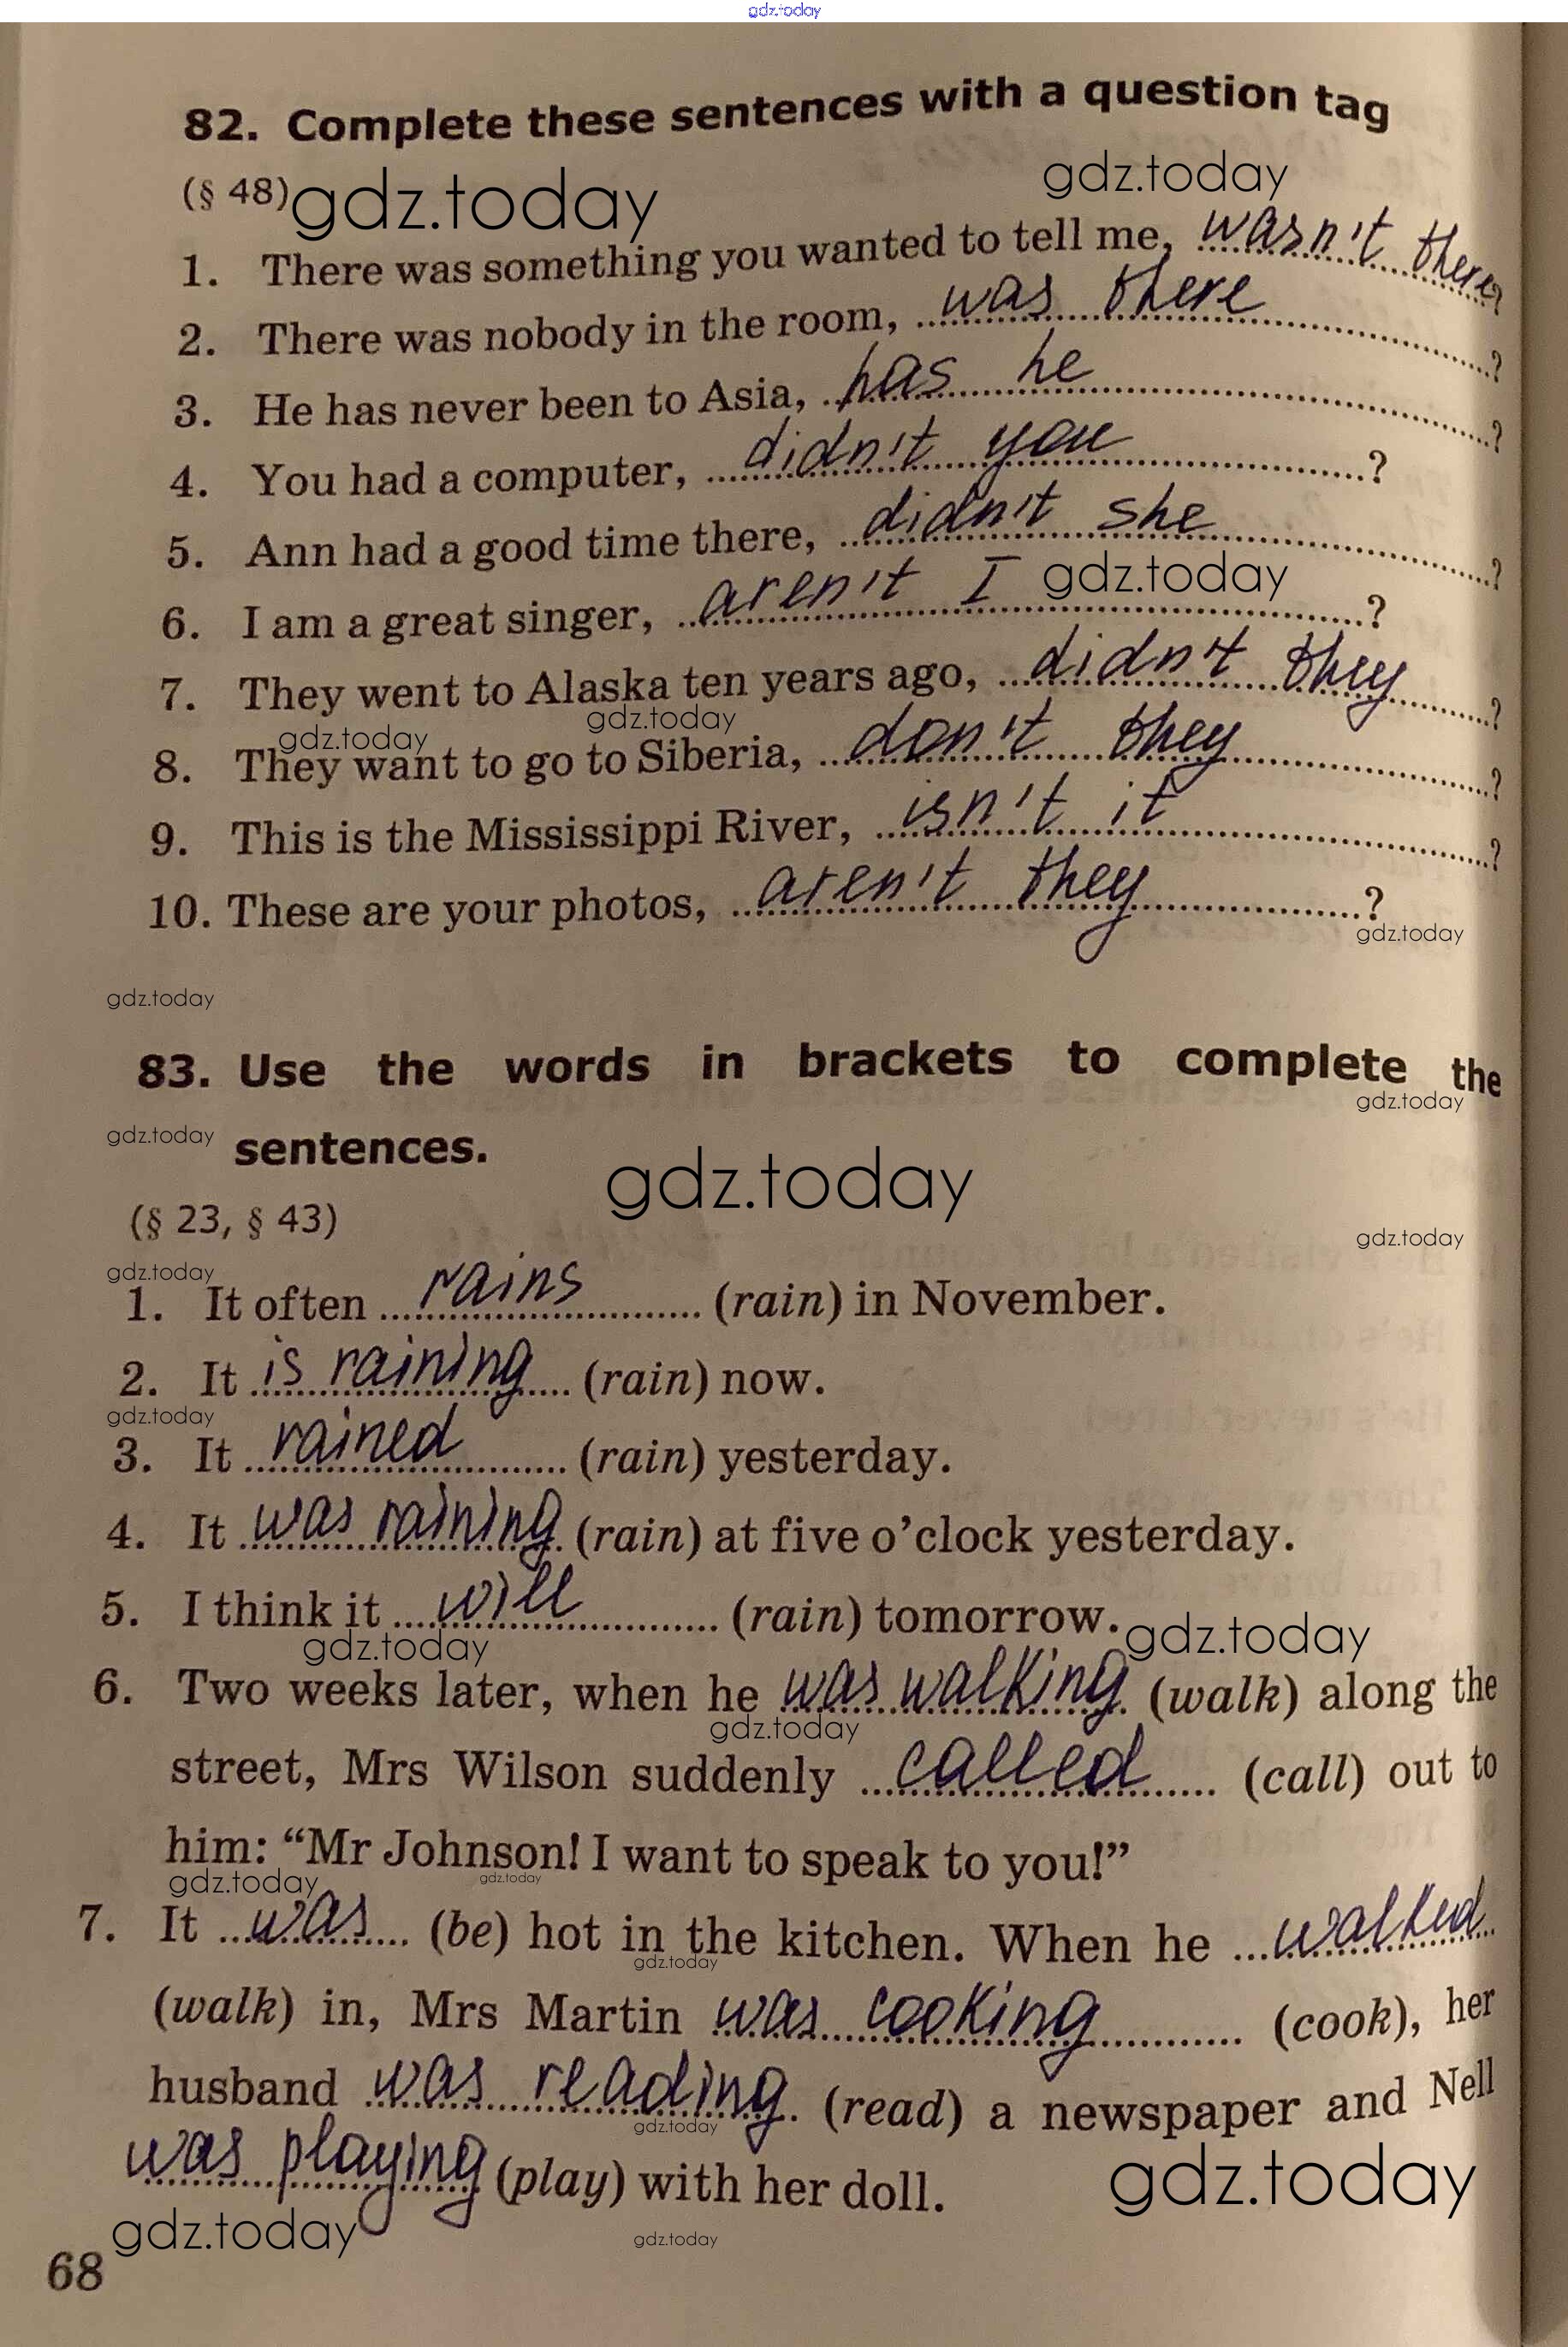 gdz.today
82. Complete these sentences with a question tag
(§ 48) gdz.today gdz.today
1. There was something you wanted to tell me, wasn't there?
2. There was nobody in the room, was there ?
3. He has never been to Asia, has he ?
4. You had a computer, didn't you ?
5. Ann had a good time there, didn't she ?
gdz.today
6. I am a great singer, aren't I ?
7. They went to Alaska ten years ago, didn't they ?
gdz.today gdz.today
8. They want to go to Siberia, don't they ?
9. This is the Mississippi River, isn't it ?
10. These are your photos, aren't they ?
gdz.today
gdz.today
83. Use the words in brackets to complete the
gdz.today
gdz.today sentences.
gdz.today
(§ 23, § 43)
gdz.today
gdz.today
1. It often rains (rain) in November.
2. It is raining (rain) now.
gdz.today
3. It rained (rain) yesterday.
4. It was raining (rain) at five o'clock yesterday.
5. I think it will (rain) tomorrow. gdz.today
gdz.today
6. Two weeks later, when he was walking (walk) along the
gdz.today
street, Mrs Wilson suddenly called (call) out to
him: “Mr Johnson! I want to speak to you!”
gdz.today gdz.today
7. It was (be) hot in the kitchen. When he walked
gdz.today
(walk) in, Mrs Martin was cooking (cook), her
husband was reading (read) a newspaper and Nell
gdz.today
was playing (play) with her doll. gdz.today
gdz.today gdz.today
68